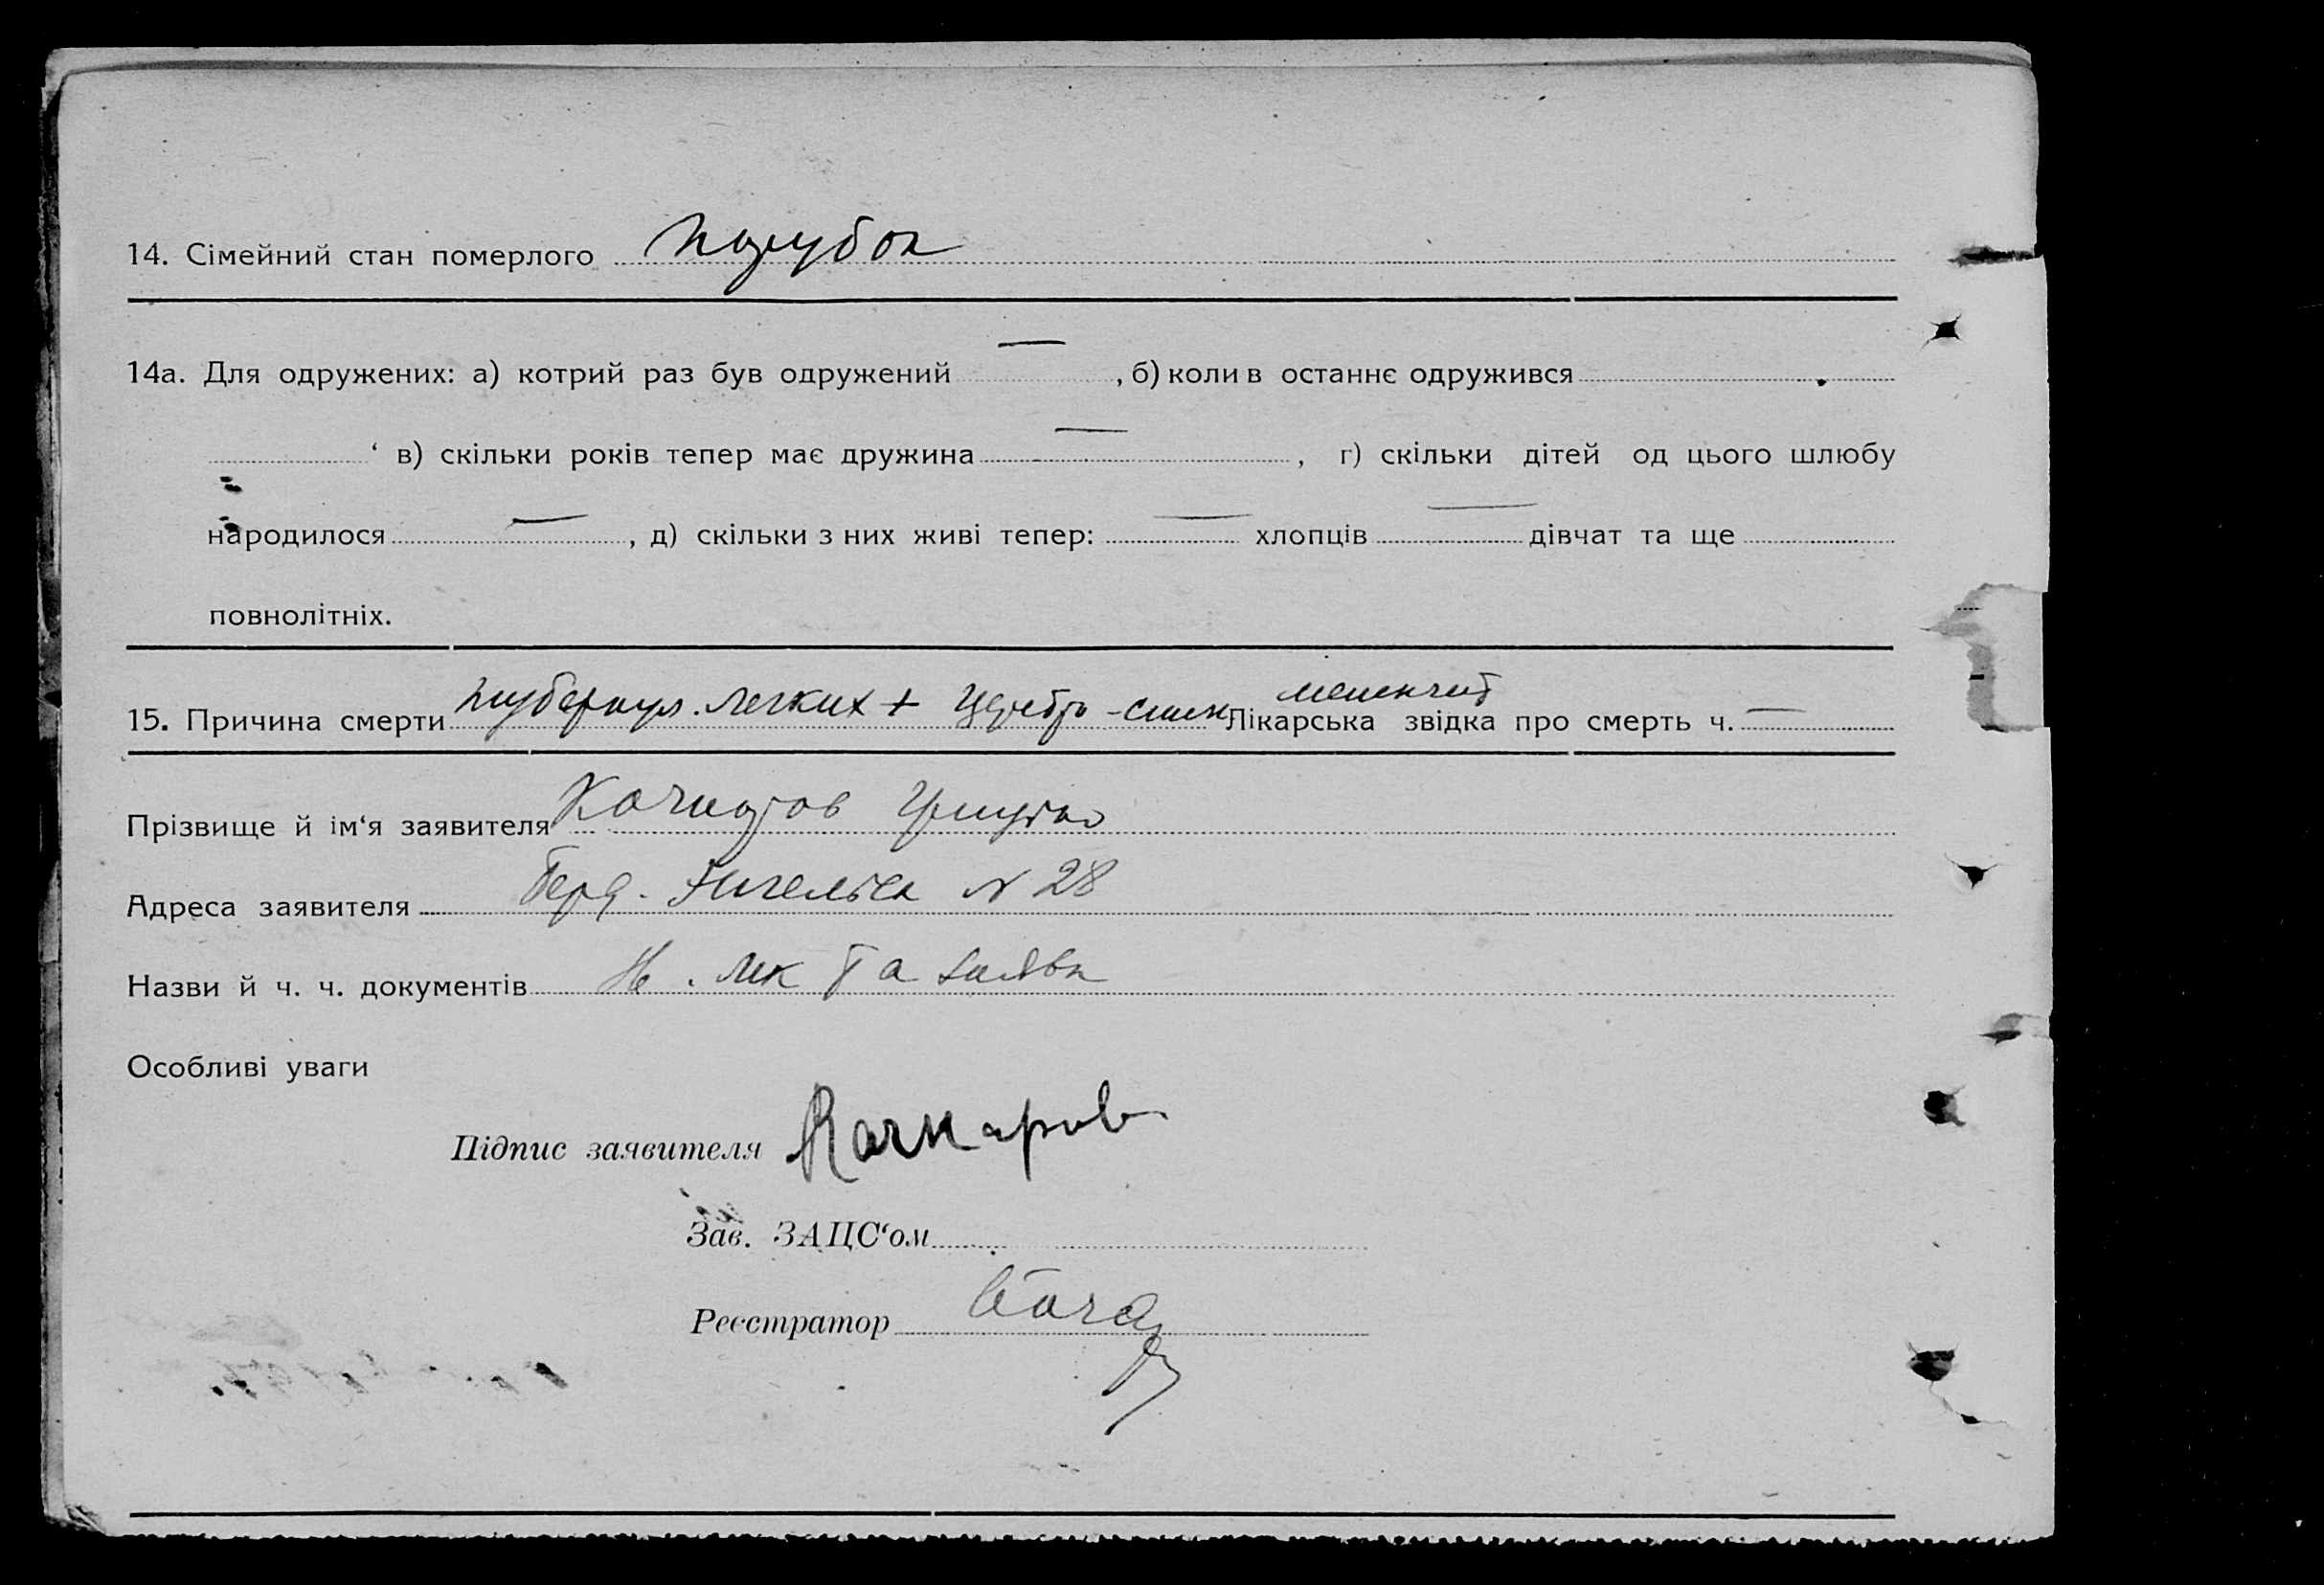 14. Сімейний стан померлого парубок
14а. Для одружених: а) котрий раз був одружений —, б) коли в останнє одружився
‘ в) скільки років тепер має дружина —, г) скільки дітей од цього шлюбу
народилося —, д) скільки з них живі тепер: — хлопців — дівчат та ще
повнолітніх.
15. Причина смерти туберкул. легких + церебро-спин менингит Лікарська звідка про смерть ч. —
Прізвище й ім‘я заявителя
Адреса заявителя Берд. Енгельса N 28
Назви й ч. ч. документів та заява
Особливі уваги
Підпис заявителя
Зав. ЗАЦС‘ом
Реєстратор